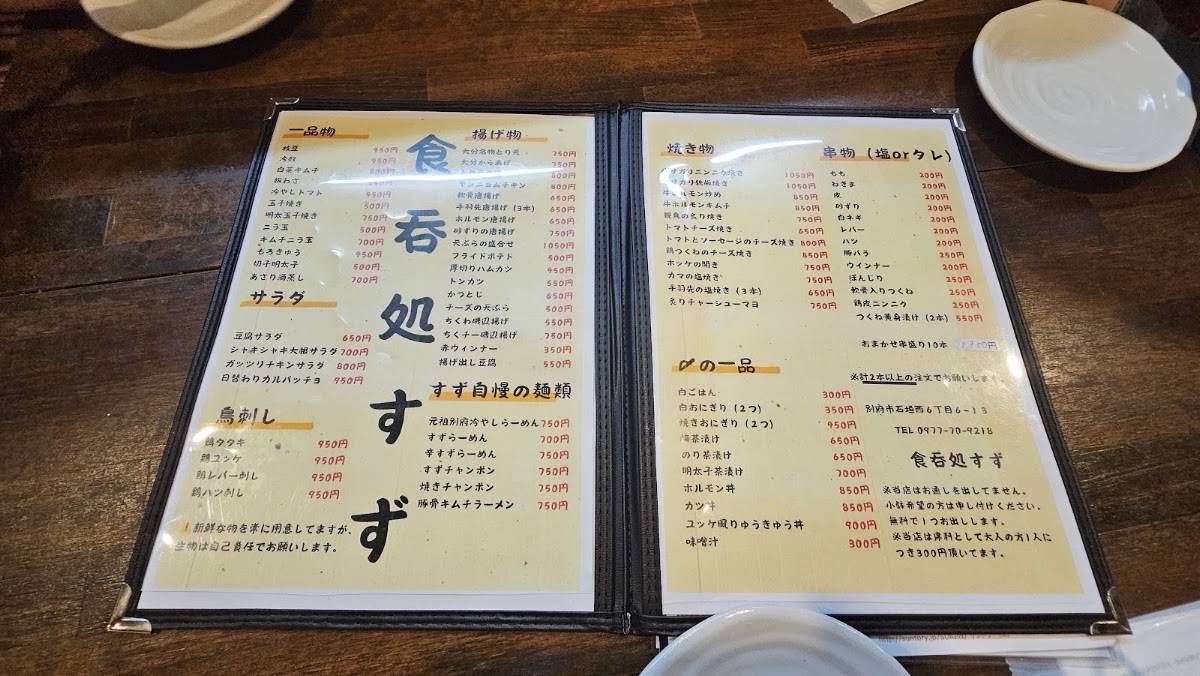 一品物
枝豆 950円
冷奴 950円
白菜キムチ
板わさ
冷やしトマト 950円
玉子焼き 500円
明太玉子焼き 750円
ニラ玉 500円
キムチニラ玉 700円
もろきゅう 950円
切子明太子 500円
あさり酒蒸し 700円
サラダ
豆腐サラダ 650円
シャキシャキ大根サラダ 700円
ガッツリチキンサラダ 800円
日替わりカルパッチョ 950円
鳥刺し
鶏タタキ 950円
鶏ユッケ 950円
鶏レバー刺し 950円
鶏ハツ刺し 950円
！新鮮な物を楽に用意してますが、
生物は自己責任でお願いします。
食呑処すず
揚げ物
大分名物とり天 750円
大分からあげ 750円
ヤンニョムチキン 800円
軟骨唐揚げ 650円
手羽先唐揚げ（3本） 650円
ホルモン唐揚げ 650円
砂ずりの唐揚げ 750円
天ぷらの盛合せ 1050円
フライドポテト 500円
厚切りハムカツ 950円
トンカツ 550円
かつとじ 650円
チーズの天ぷら 500円
ちくわ磯辺揚げ 550円
ちくチー磯辺揚げ 750円
赤ウィンナー 350円
揚げ出し豆腐 550円
すず自慢の麺類
元祖別府冷やしらーめん 750円
すずらーめん 700円
辛すずらーめん 750円
すずチャンポン 750円
焼きチャンポン 750円
豚骨キムチラーメン 750円
焼き物
サガリニンニク焼き 1050円
サガリ鉄板焼き 1050円
牛ホルモン炒め 850円
牛ホルモンキムチ 850円
親鳥の炙り焼き 750円
トマトチーズ焼き 650円
トマトとソーセージのチーズ焼き 800円
鶏つくねのチーズ焼き 850円
ホッケの開き 750円
カマの塩焼き 750円
手羽先の塩焼き（3本） 650円
炙りチャーシューマヨ 750円
串物（塩orタレ）
もも 200円
ねぎま 200円
皮 200円
砂ずり 200円
白ネギ 200円
レバー 200円
ハツ 200円
豚バラ 200円
ウインナー 200円
ぼんじり 250円
軟骨入りつくね 250円
鶏皮ニンニク 250円
つくね黄身漬け（2本） 550円
おまかせ串盛り10本
※計2本以上の注文でお願いします。
〆の一品
白ごはん 300円
白おにぎり（2つ） 350円
焼きおにぎり（2つ） 950円
梅茶漬け 650円
のり茶漬け 650円
明太子茶漬け 700円
ホルモン丼 850円
カツ丼 850円
ユッケ風りゅうきゅう丼 900円
味噌汁 300円
別府市石垣西6丁目6-13
TEL 0977-70-9218
食呑処すず
※当店はお通しを出してません。
小鉢希望の方は申し付けください。
無料で1つお出しします。
※当店は席料として大人の方1人に
つき300円頂いてます。